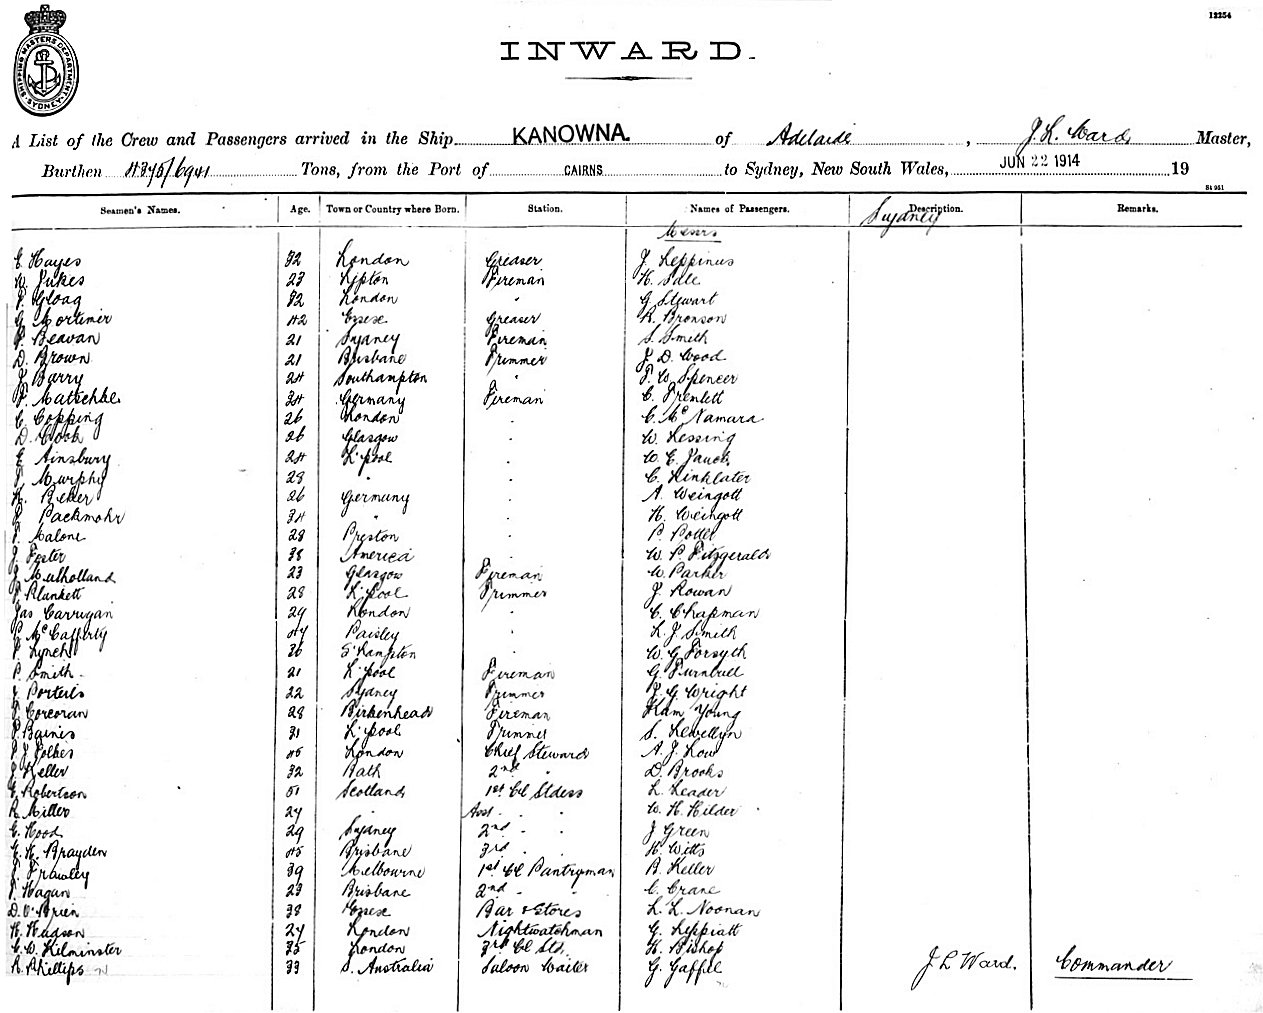 12254
SHIPPING MASTERS DEPARTMENT SYDNEY
INWARD.
A List of the Crew and Passengers arrived in the Ship KANOWNA. of Adelaide, J. L. Ward Master,
Burthen Tons, from the Port of CAIRNS to Sydney, New South Wales, JUN 22 1914 19
Seamen's Names. Age. Town or Country where Born. Station. Names of Passengers. Description. Remarks.
Messrs Sydney
E Hayes 32 London Greaser J. Leppinus
W. Jukes 23 Lipton Fireman H. Sale
Gloag 32 London " G Stewart
G Mortimer 42 Essex Greaser R. Bronson
Beavan 21 Sydney Fireman S. Smith
D. Brown 21 Brisbane Trimmer J D. Wood
J Barry 24 Southampton " F. W. Spencer
F. Matschke 34 Germany Fireman C. Tremlett
C Copping 26 London " C. McNamara
D. Cook 26 Glasgow " W. Lessing
E Ainsbury 24 L'pool " W. E.
Murphy 28 " " C. Kinklater
Beker 26 Germany " A. Weingott
Packmohr 34 " " H. Weingott
Malone 28 Preston " P. Potter
J. Foster 38 America " W. P Fitzgerald
J Mulholland 23 Glasgow Fireman W. Parker
Plunkett 28 L'pool Trimmer J. Rowan
Jas Carrigan 29 London " C. Chapman
McCafferty 44 Paisley " L. J. Smith
Lynch 36 S'Hampton W. G Forsyth
P. Smith 21 L'pool Fireman G. Turnbull
22 Sydney Trimmer J. G Wright
Corcoran 28 Birkenhead Fireman Kum Young
Baines 31 L'pool Trimmer S. Lewellyn
J 45 London Chief Steward A. J. Low
J Keller 32 Bath 2nd " D. Brooks
Robertson 51 Scotland 1st Cl Stdess L. Leader
R. Miller 27 " Asst " " W. H. Hilder
E. Hood 29 Sydney 2nd " " J Green
H. Brayden 45 Brisbane 3rd " " H. Witts
Frawley 39 Melbourne 1st Cl Pantryman B. Keller
Hagan 23 Brisbane 2nd " " C. Crane
D. O'Brien 38 Essex Bar & Stores L. L. Noonan
H. Hudson 27 London Nightwatchman G. Leppiatt
C. W. Kilminster 35 London 3rd Cl Std. H. Bishop
R. Phillips 33 S. Australia Saloon Waiter G. Gaffel J L Ward. Commander